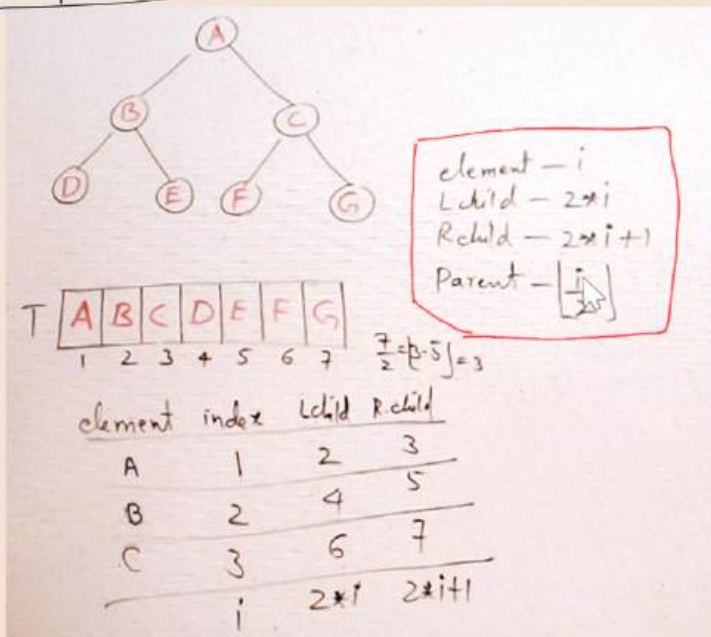 A
B C
D E F G
element – i
Lchild – 2*i
Rchild – 2*i+1
Parent – ⌊i/2⌋
T A B C D E F G
1 2 3 4 5 6 7
7/2 = ⌊3.5⌋ = 3
element index Lchild R.child
A 1 2 3
B 2 4 5
C 3 6 7
i 2*i 2*i+1